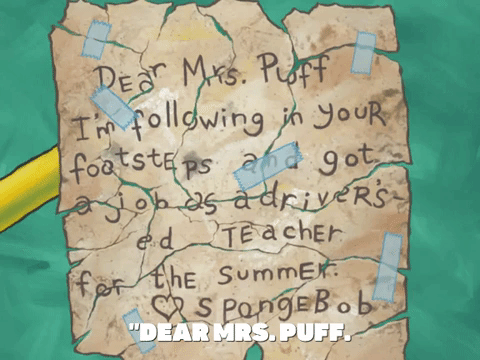 DEar Mrs. Puff
I'm following in youR
footstEps and got
a job as a driveRs-
ed TEachEr
for the summER.
♡ SpongEBob
"DEAR MRS. PUFF.